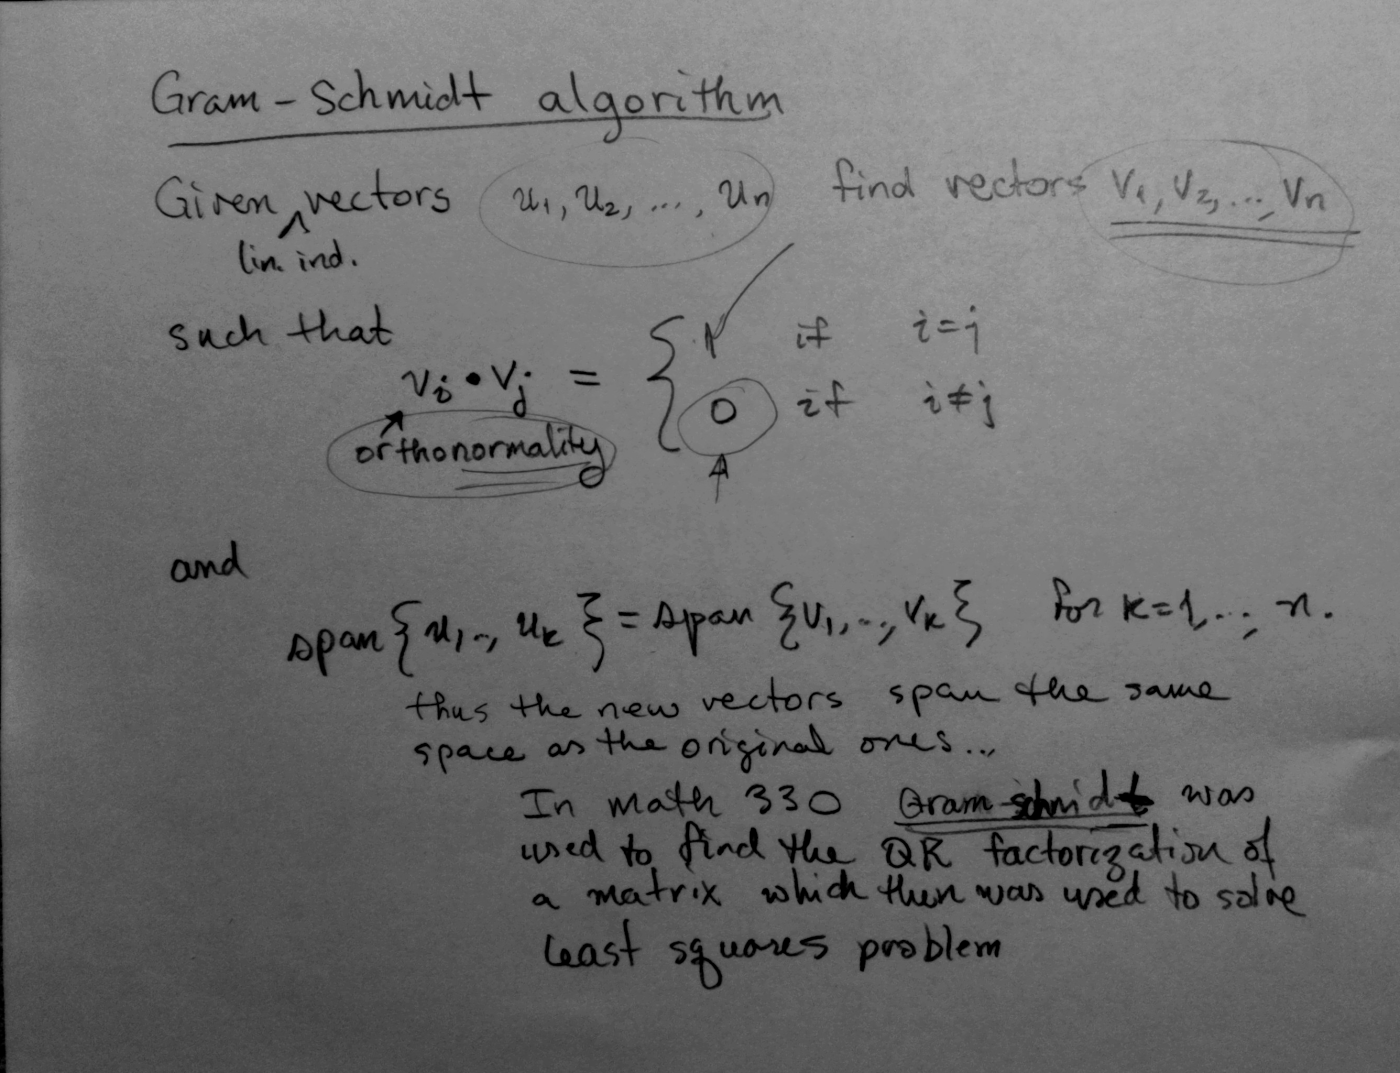 Gram-Schmidt algorithm
Given vectors u₁, u₂, ..., uₙ find vectors v₁, v₂, ..., vₙ
lin. ind.
such that
vᵢ • vⱼ = { 1 if i=j
0 if i≠j
orthonormality
and
span{u₁,..,uₖ} = span{v₁,..,vₖ} for k=1,..., n.
thus the new vectors span the same
space as the original ones...
In math 330 Gram-schmidt was
used to find the QR factorization of
a matrix which then was used to solve
least squares problem